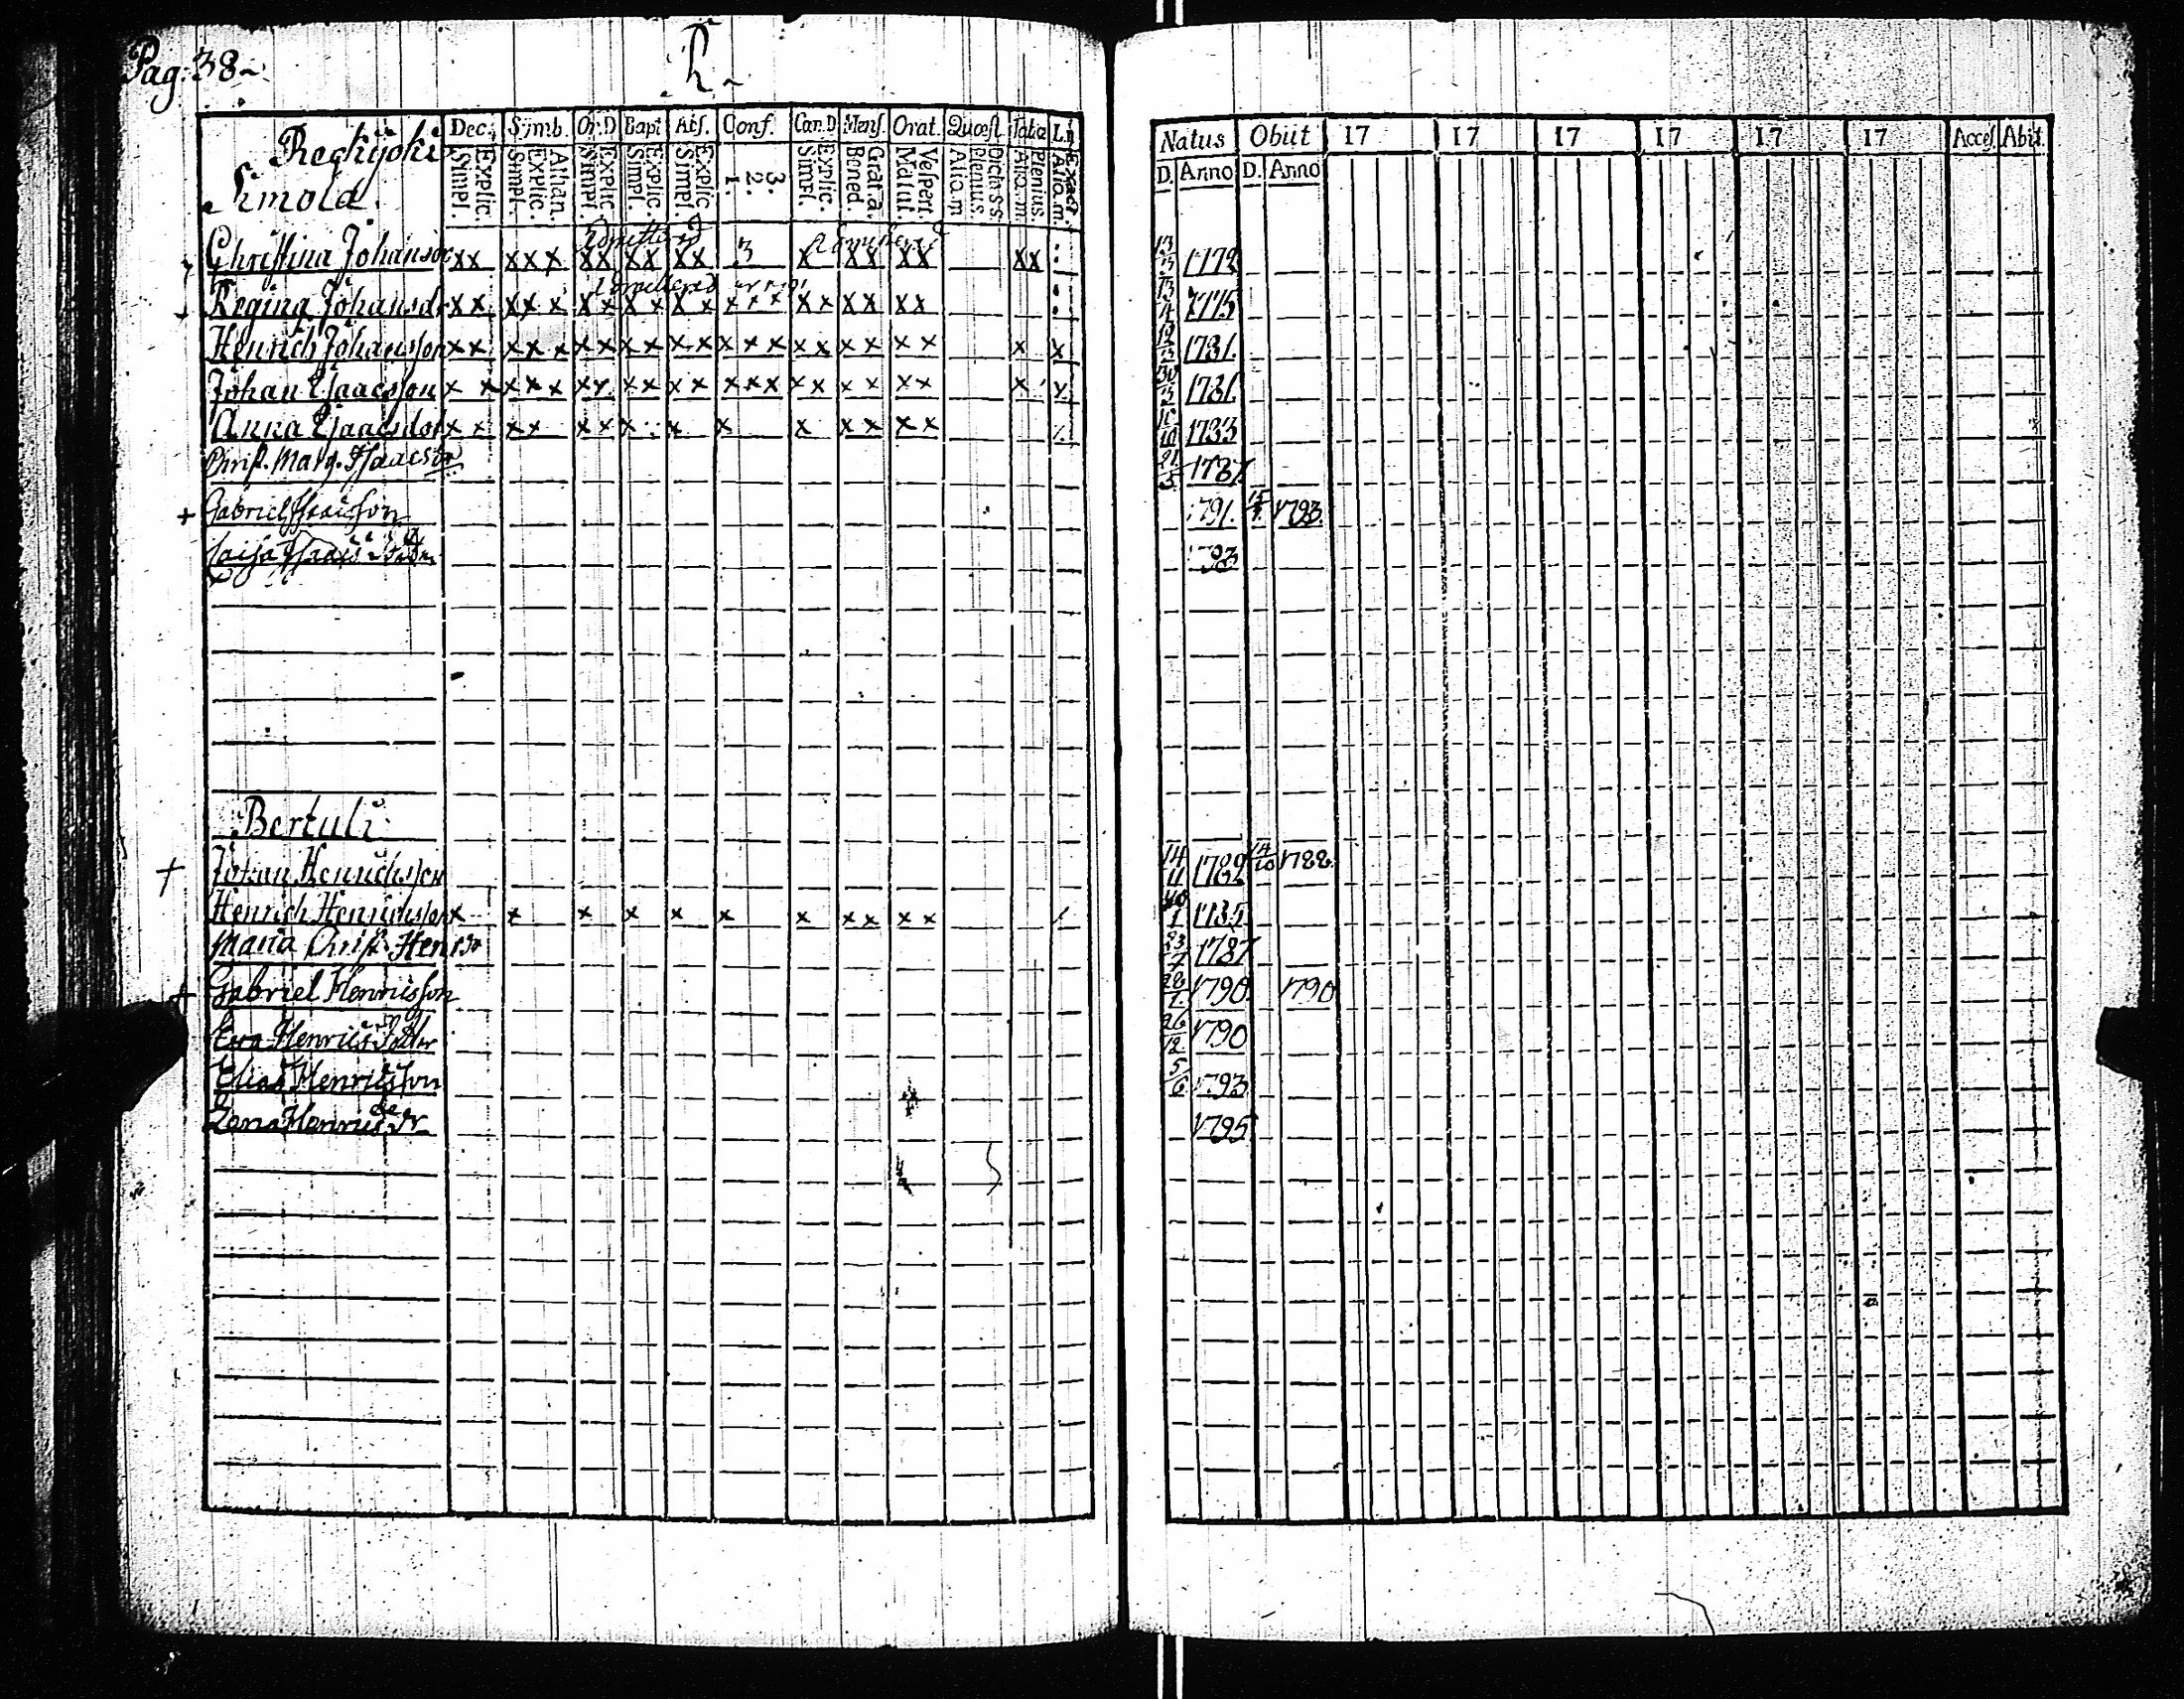 Pag: 38
R
Dec. Symb. Or.D Bapt Abs. Conf. Can.D Mens. Orat. Quæst Tabœ L.n
Simpl. Explic. Simpl. Explic. Athan. Simpl. Explic Simpl. Explic. Simpl. Explic 1. 2. 3. Simpl. Explic. Bened. Grat:a. Matut. Vespert. Alio.m Plenius Dicta s.s. Alio.m. Plenius. Alio.m. Exact.
Natus Obiit 17 17 17 17 17 17 Acces. Abit.
D. Anno D. Anno
Simola
Admitterad
Christina Johansdr xx xxx xx xx xx 3 x xx xx xx 13/3 1772
Regina Johansdr xx xxx xx xx xx xxx xx xx xx 13/4 1775
Henrich Johansson xx xxx xx xx xx xxx xx xx xx x x 1781.
Johan Isaacsson xx xxx xx xx xx xxx xx xx xx x x 1781.
Anna Isaacsdot xx xx xx x x x x xx xx 10 1783
Christ. Marg. Isaacsdr 21/5 1787
+ Gabriel Isacsson 1791. 15 1793.
Caisa 1793
Bertuli
† Johan Henrichsson 14/11 1782 14/10 1788.
Henrich Henrichsson x x x x x x x xx xx 1785
Maria Christ. Henrsdr 23 1787
+ Gabriel Henricsson 28/1. 1790. 1790
Eva Henricsdotter 26/12 1790
Elias Henricsson 5/6 1793
Lena Henricsdr 1795